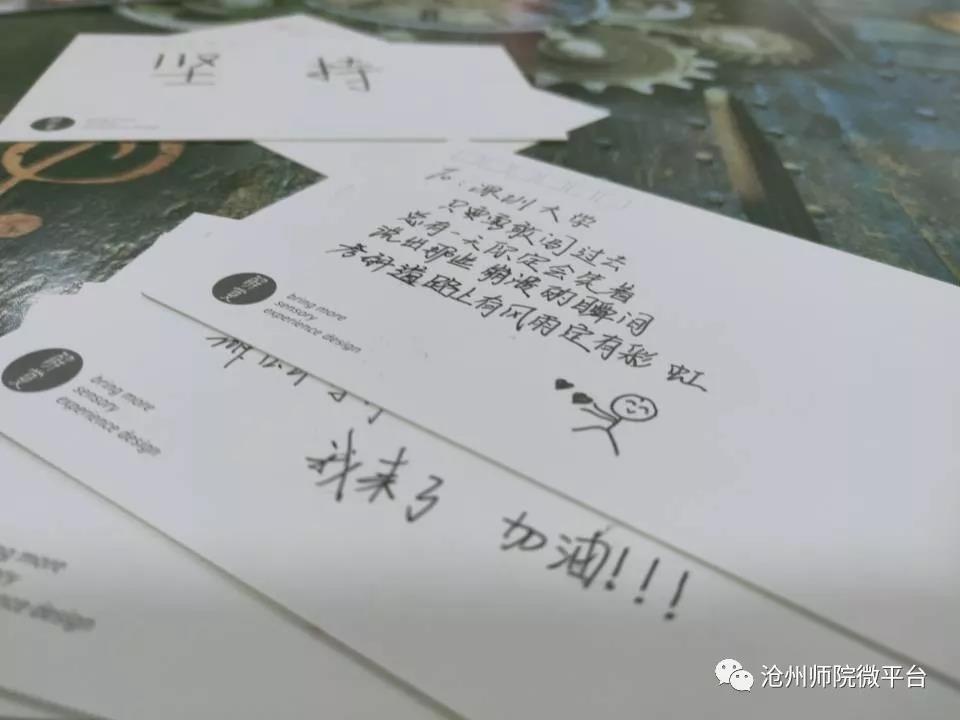 坚 持
石：深圳大学
只要勇敢闯过去
总有一天你定会笑着
流出那些动漫的瞬间
考研道路上有风雨定有彩虹
bring more
sensory
experience design
bring more
sensory
experience design
我来了 加油!!!
more
design
沧州师院微平台